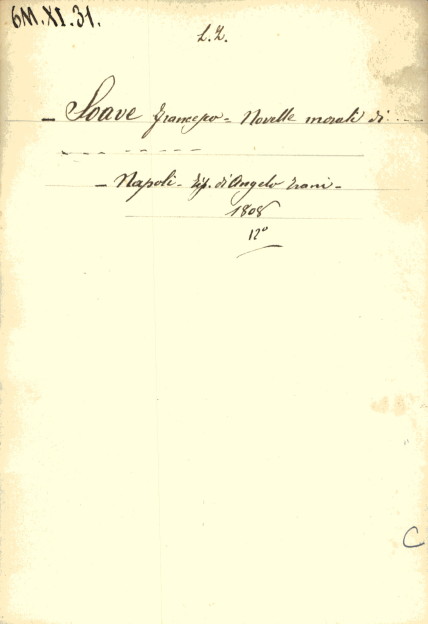 6M.XI.31.
L.Z.
– Soave Francesco – Novelle morali di ----
– – – – – –
– Napoli – Tip. di Angelo Trani –
1808
12°
C